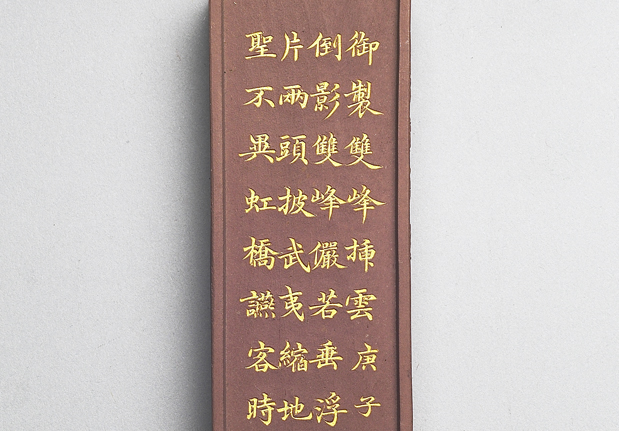 御製雙峰揷雲庚子
倒影雙峰儼若垂浮
片兩頭披武夷縮地
聖不異虹橋讌客時